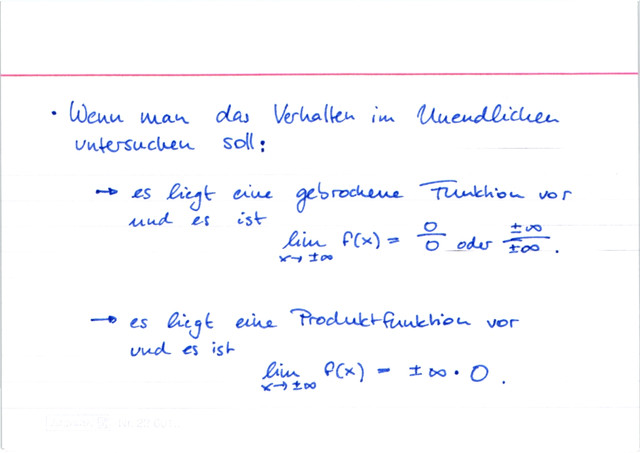 • Wenn man das Verhalten im Unendlichen
untersuchen soll:
→ es liegt eine gebrochene Funktion vor
und es ist
lim f(x) = 0/0 oder ±∞/±∞.
x→±∞
→ es liegt eine Produktfunktion vor
und es ist
lim f(x) = ±∞ · 0.
x→±∞